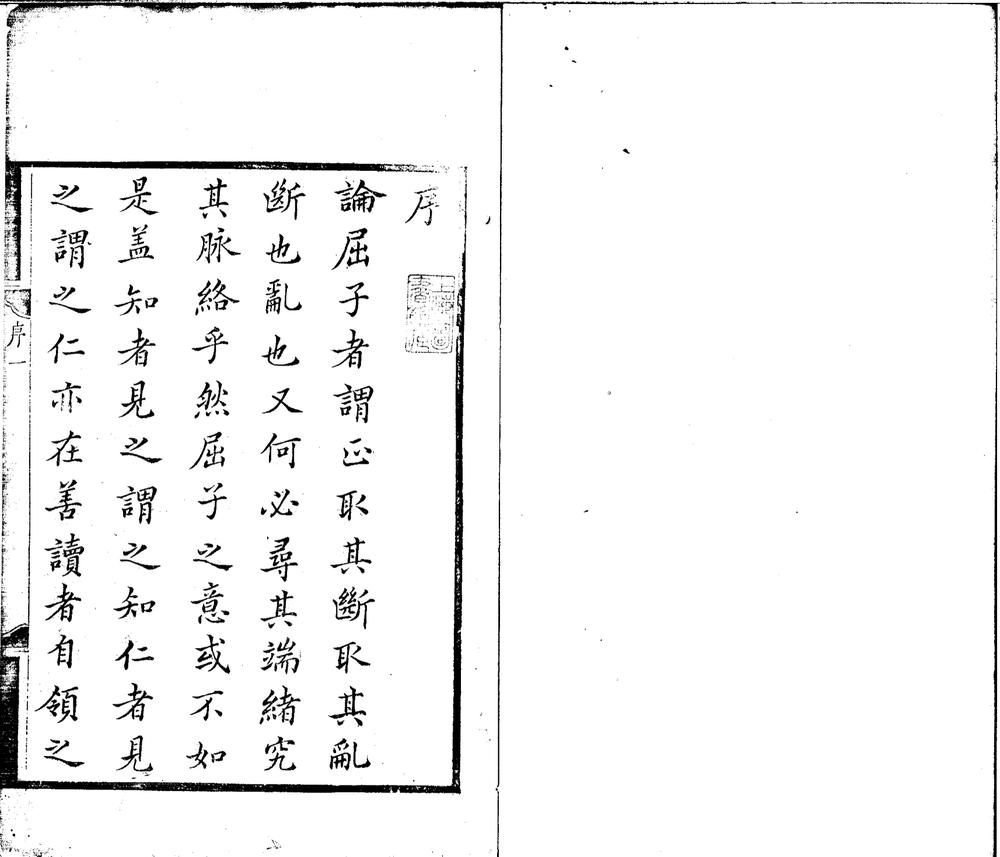 序
論屈子者謂正取其斷取其亂
斷也亂也又何必尋其端緒究
其脉絡乎然屈子之意或不如
是盖知者見之謂之知仁者見
之謂之仁亦在善讀者自領之
序一